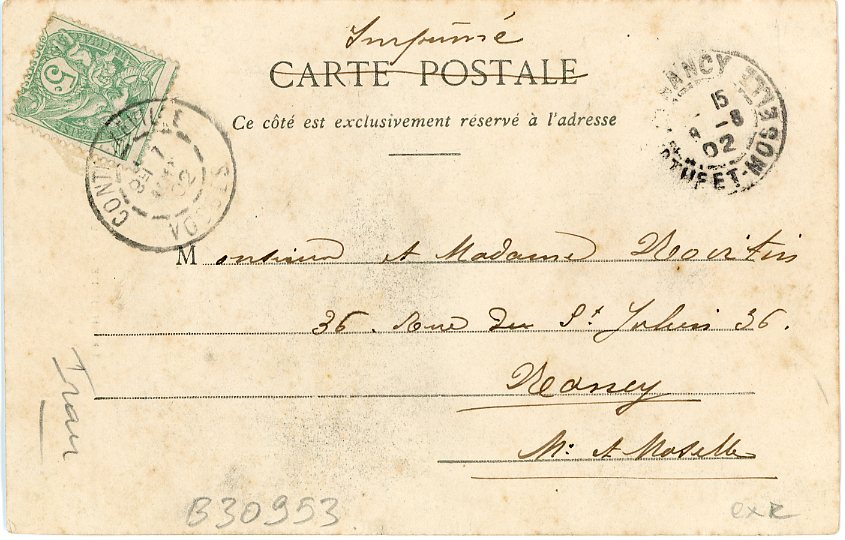 Imprimé
CARTE POSTALE
Ce côté est exclusivement réservé à l'adresse
5c
CONTREXÉVILLE
VOSGES
7
02
NANCY
MEURTHE-ET-MOSELLE
15
9 -8
02
Monsieur et Madame
36. Rue du St Julien 36.
Nancy
Mthe et Moselle
Iran
B30953